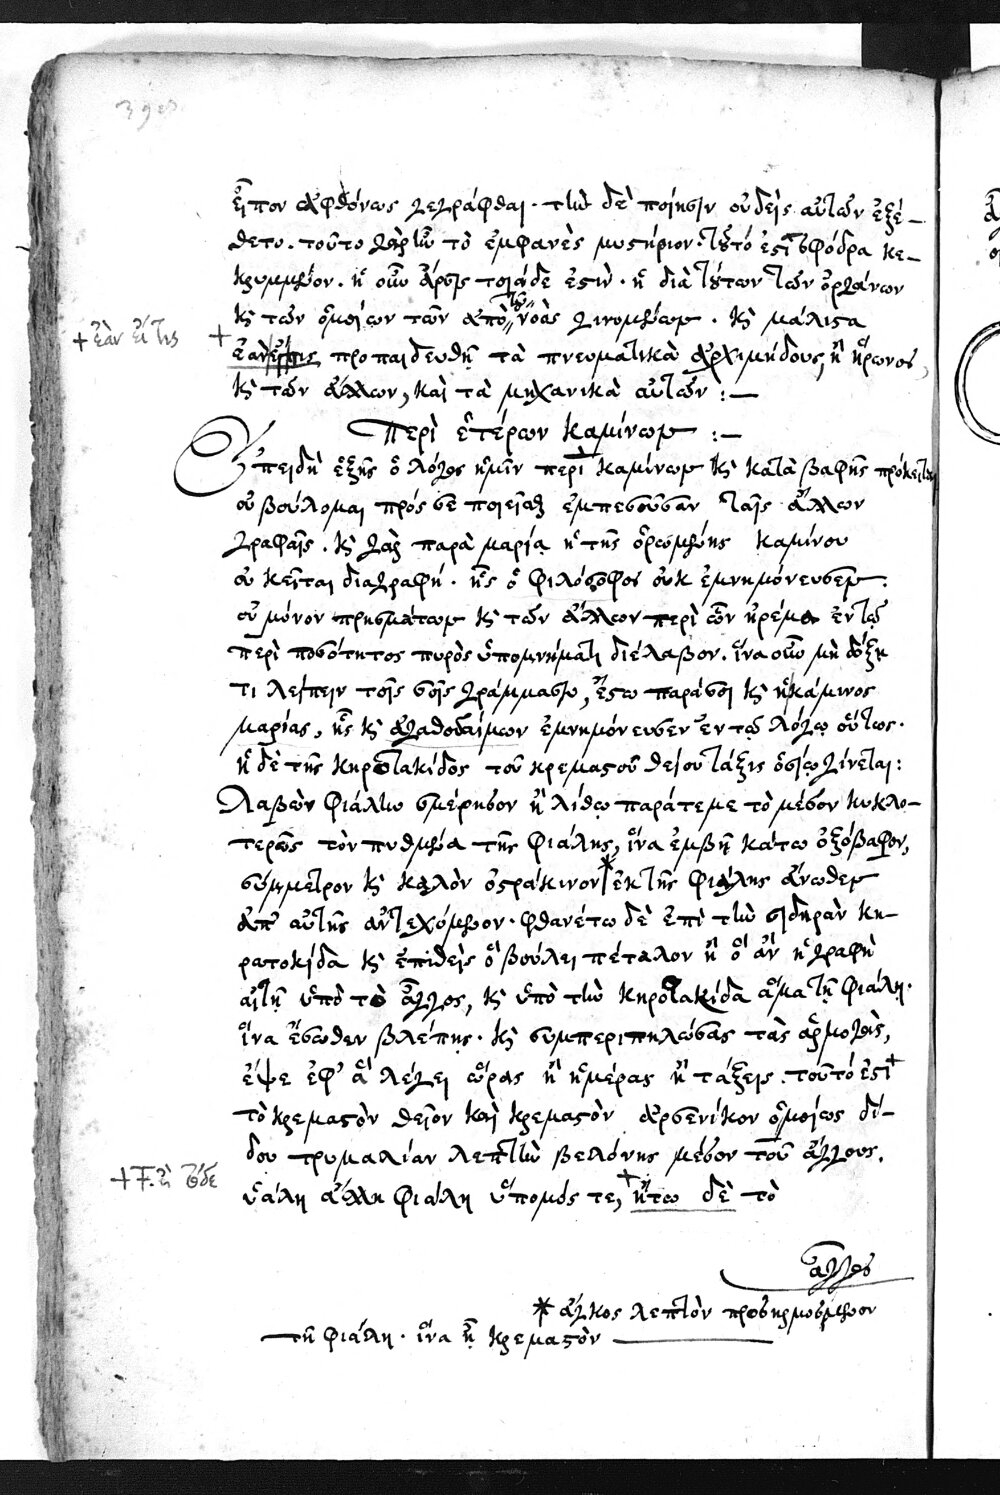 εἶπον ἀφθόνως γεγράφθαι· τὴν δὲ ποίησιν οὐδεὶς αὐτῶν ἐξέ-
θετο. τοῦτο γὰρ ἦν τὸ ἐμφανὲς μυστήριον· τοῦτό ἐστι σφόδρα κε-
κρυμμένον. ἡ οὖν ἄρσις τοιάδε ἐστὶν· ἡ διὰ τούτων τῶν ὀργάνων
καὶ τῶν ὁμοίων τῶν ἀπὸ νοὸς γινομένων. καὶ μάλιστα
+ ἐὰν εἴ τις
προπαιδευθῇ τὰ πνευματικὰ ἀρχιμήδους, ἢ ἥρωνος,
καὶ τῶν ἄλλων, καὶ τὰ μηχανικὰ αὐτῶν :—
Περὶ ἑτέρων καμίνων :—
Ἐπειδὴ ἑξῆς ὁ λόγος ἡμῖν περὶ καμίνων καὶ καταβαφῆς πρόκειται
οὐ βούλομαι πρός σε ποιεῖσθαι ἐμπεσοῦσαν ταῖς ἄλλων
γραφαῖς. καὶ γὰρ παρὰ μαρίᾳ ἡ τῆς ὁρωμένης καμίνου
οὐ κεῖται διαγραφή. ἧς ὁ φιλόσοφος οὐκ ἐμνημόνευσεν.
οὐ μόνον πρισμάτων καὶ τῶν ἄλλων περὶ ὧν ἠρέμα ἐν τῷ
περὶ ποσότητος πυρὸς ὑπομνήματι διέλαβον. ἵνα οὖν μὴ δόξῃ
τι λείπειν τοῖς σοῖς γράμμασιν, ἔστω παρά σοι καὶ ἡ κάμινος
μαρίας, ἧς καὶ ἀγαθοδαίμων ἐμνημόνευσεν ἐν τῷ λόγῳ οὕτως.
ἡ δὲ τῆς κηροτακίδος τοῦ κρεμαστοῦ θείου τάξις γίνεται:
Λαβὼν φιάλην ἢ λίθῳ παράτεμε τὸ μέσον κυκλο-
τερῶς τὸν πυθμένα τῆς φιάλης, ἵνα ἐμβῇ κάτω ὀξόβαφον,
σύμμετρον καὶ καλὸν ὀστράκινον * ἐκ τῆς φιάλης ἄνωθεν
ἀπ' αὐτῆς ἀντεχόμενον· φθανέτω δὲ ἐπὶ τὴν σιδηρὰν κη-
ροτακίδα καὶ ἐπιθεὶς ὃ βούλει πέταλον ἢ ὃ ἂν ἡ γραφὴ
αἰτῇ ὑπὸ τὸ ἄγγος, καὶ ὑπὸ τὴν κηροτακίδα ἅμα τῇ φιάλῃ·
ἵνα ἔσωθεν βλέπῃς. καὶ συμπεριπηλώσας τὰς ἁρμογὰς,
ἕψε ἐφ' ἃ λέγει ὥρας ἢ ἡμέρας ἢ τάξεις. τοῦτό ἐστι
τὸ κρεμαστὸν θεῖον καὶ κρεμαστὸν ἀρσενίκον ὁμοίως δί-
δου τρυμαλίαν λεπτὴν βελόνης μέσον τοῦ ἄγγους.
ὑάλη ἄλλη φιάλη ὑπομόστε, + ἤτω δὲ τὸ
ἄγγος
* ἄγγος λεπτὸν προσηρμοσμένον
τῇ φιάλῃ. ἵνα ᾖ κρεμαστὸν